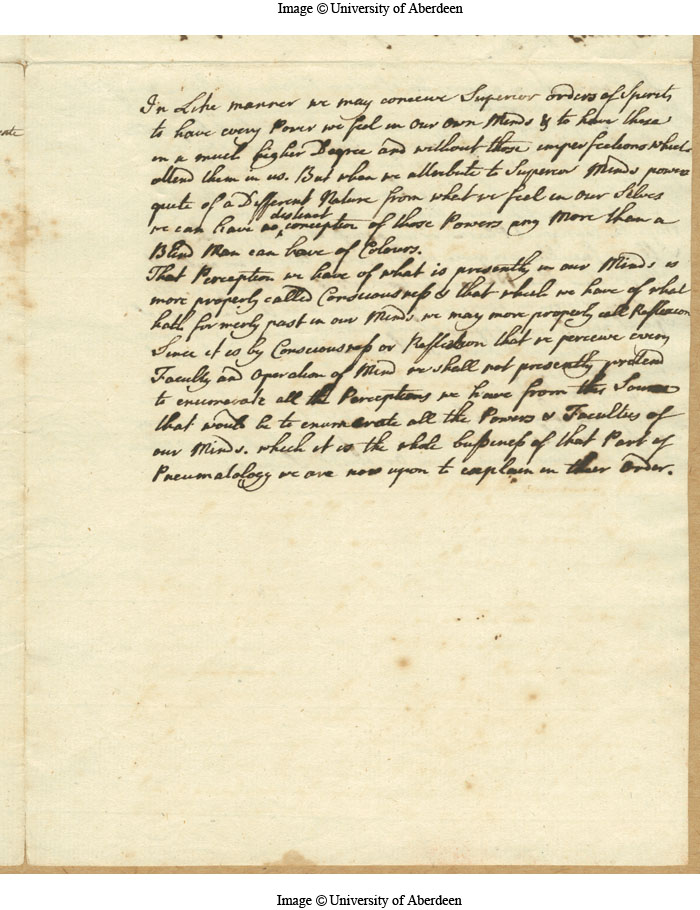 Image © University of Aberdeen
In Like manner we may conceive Superior orders of Spirits
to have every Power we feel in our own Minds & to have those
in a much higher Degree and without those imperfections which
attend them in us. But when we attribute to Superior Minds powers
quite of a Different Nature from what we feel in our Selves
distinct
we can have no conception of those Powers any More than a
Blind Man can have of Colours.
That Perception we have of what is presently in our Minds is
more properly called Consciousness & that which we have of what
hath formerly past in our Minds we may more properly call Reflexion
Since it is by Consciousness or Reflection that we perceive every
Faculty and Operation of Mind we shall not presently pretend
to enumerate all the Perceptions we have from this Source
that would be to enumerate all the Powers & Faculties of
our Minds. which it is the whole bussiness of that Part of
Pneumatology we are now upon to explain in their Order.
Image © University of Aberdeen